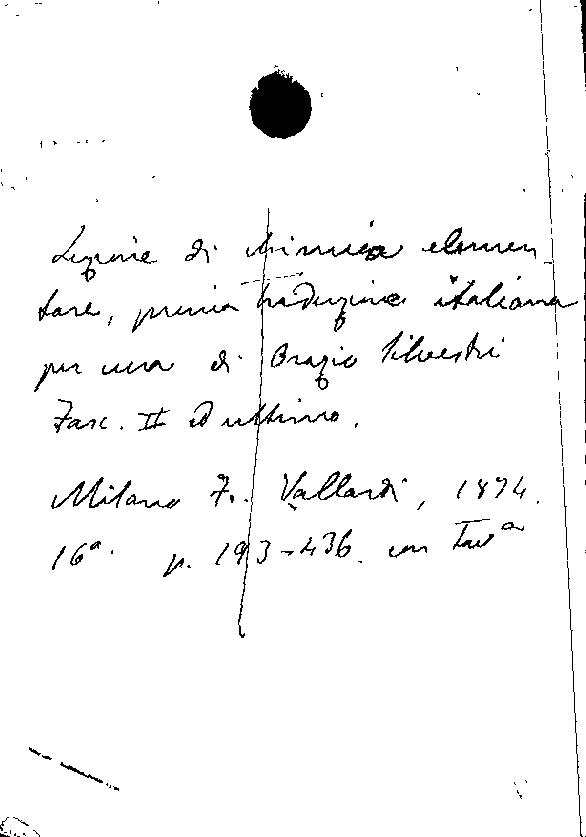 Lezione di chimica elemen-
tare, prima traduzione italiana
per cura di Orazio Silvestri
Fasc. II ed ultimo.
Milano F. Vallardi, 1874.
16ª. p. 193-436. con Tavª